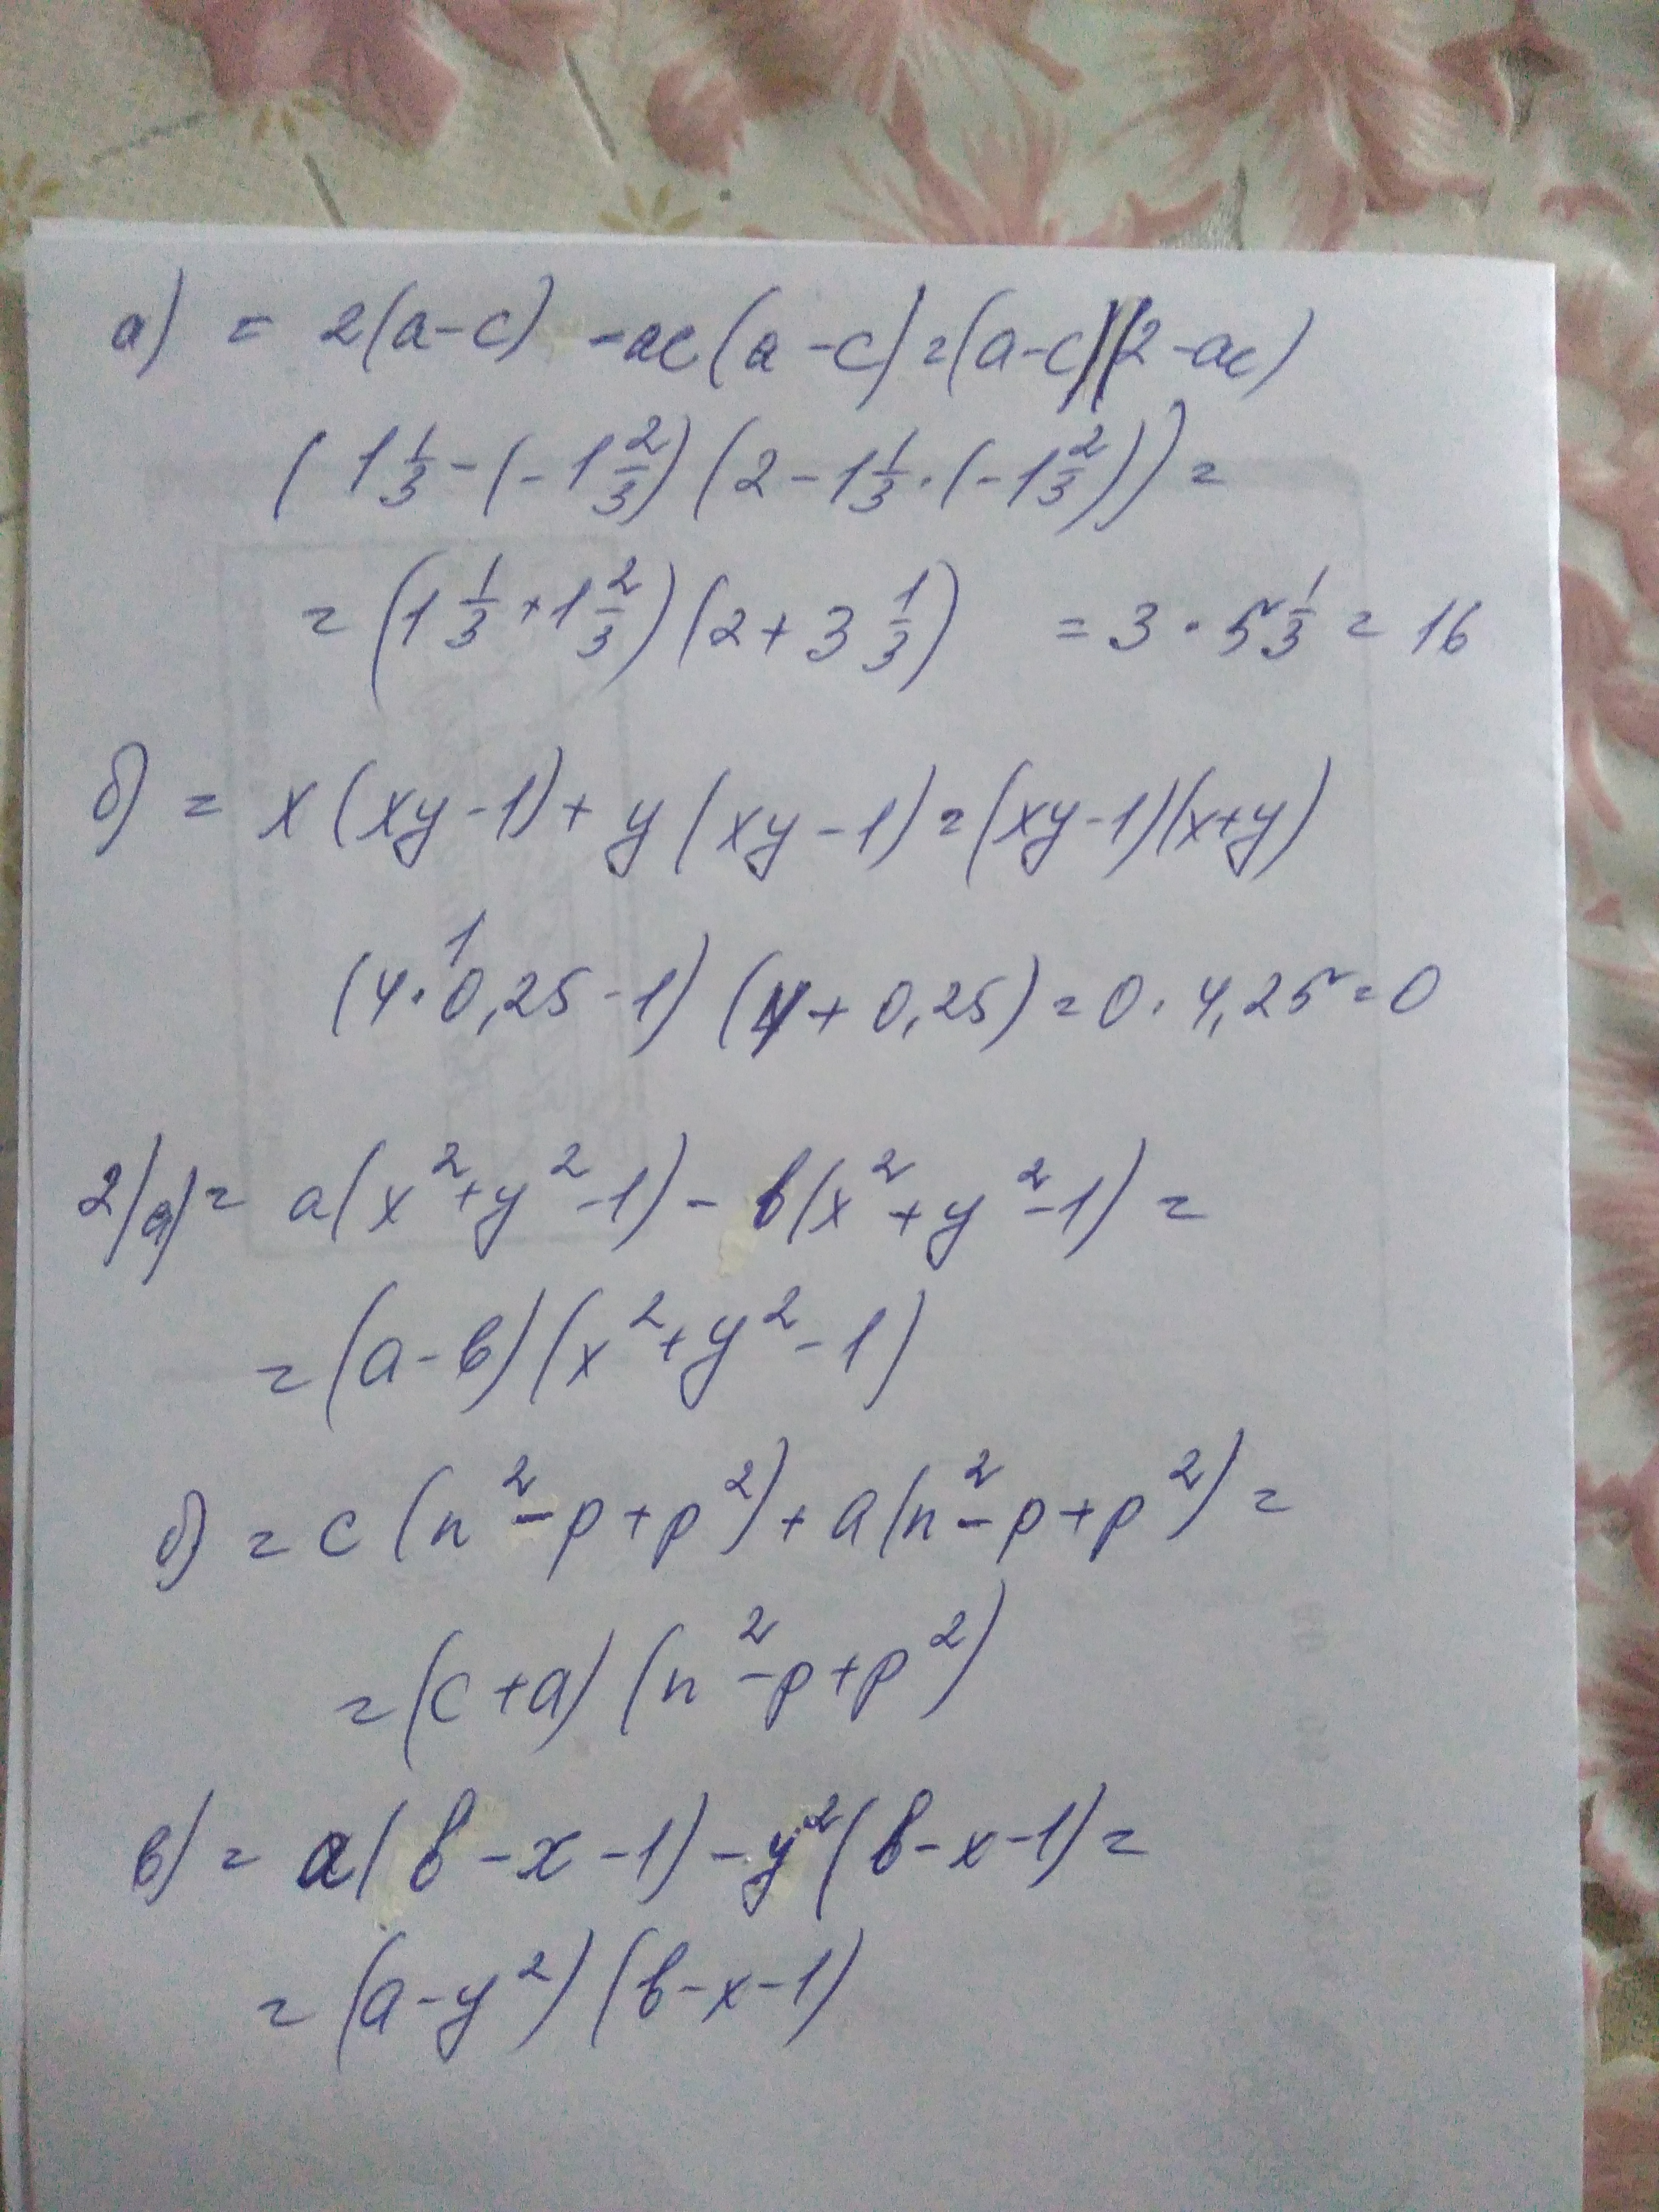 а) = 2(a-c) -ac(a-c)=(a-c)(2-ac)
(1 1/3-(-1 2/3)(2-1 1/3·(-1 2/3))=
=(1 1/3+1 2/3)(2+3 1/3) =3·5 1/3=16
б) = x(xy-1)+y(xy-1)=(xy-1)(x+y)
1
(4·0,25-1)(4+0,25)=0·4,25=0
2/а)= a(x²+y²-1)-b(x²+y²-1)=
=(a-b)(x²+y²-1)
б) =c(n²-p+p²)+a(n²-p+p²)=
=(c+a)(n²-p+p²)
в) = a(b-x-1)-y²(b-x-1)=
=(a-y²)(b-x-1)